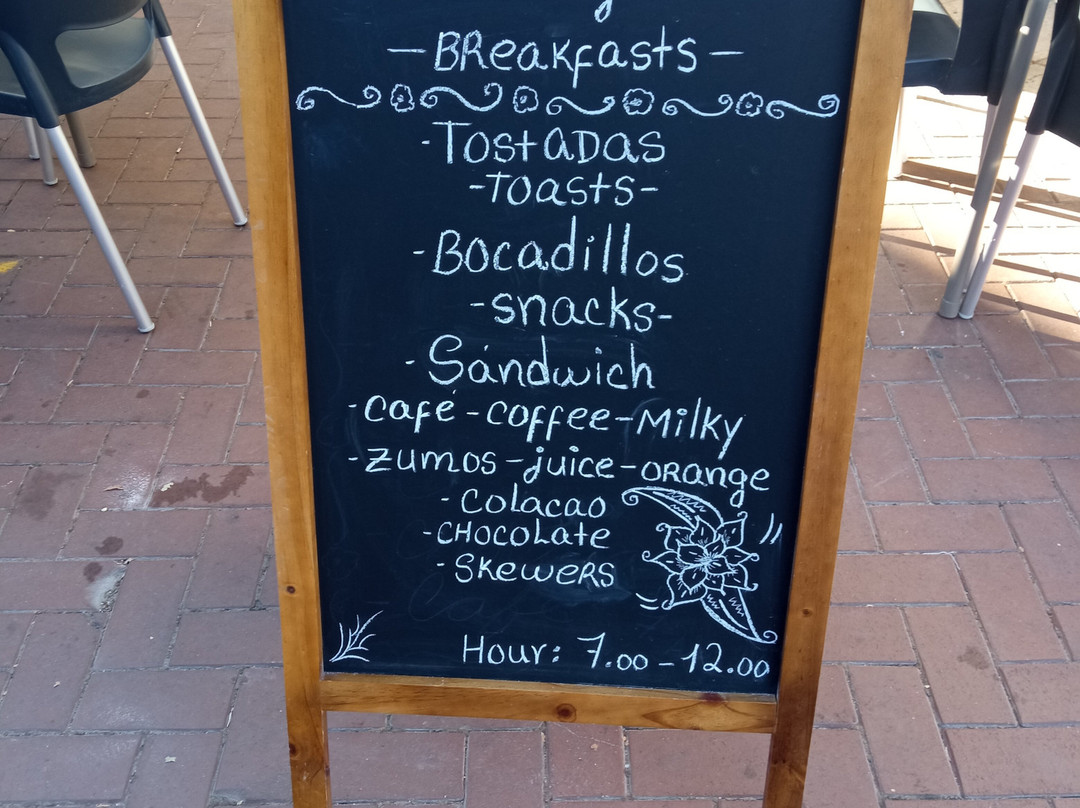 -Breakfasts-
-Tostadas
-Toasts-
-Bocadillos
-snacks-
-Sándwich
-Café-coffee-Milky
-Zumos-juice-orange
-Colacao
-CHocoLate
-Skewers
Hour: 7.00-12.00